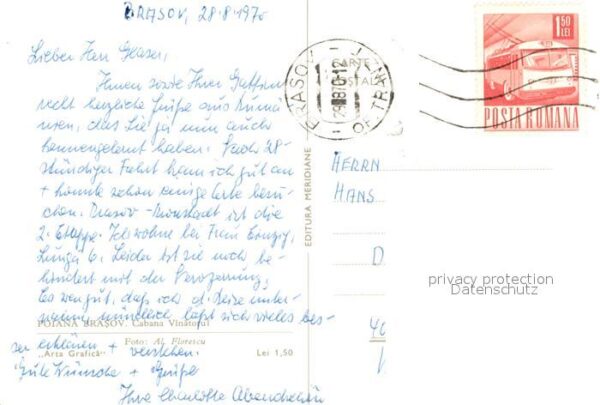 BRASOV, 28.8.1970
Lieber Herr Glaser,
Ihnen sowie Ihrer Gattin
recht herzliche Grüße aus Rumä
nien, das Sie ja nun auch
kennengelernt haben. Nach 28-
stündiger Fahrt kam ich gut an
+ konnte schon einige Orte besu-
chen. Brasov - Kronstadt ist die
2. Etappe. Ich wohne bei Frau
Lunga 6. Leider ist sie noch be-
hindert mit der
Es war gut, daß ich d. Reise unter-
nahm, mündlich läßt sich vieles bes-
POIANA BRAŞOV. Cabana Vînătorul
Foto: Al. Florescu
ser erklären + verstehen.
„Arta Grafică"
Lei 1,50
Gute Wünsche + Grüße
Ihre Charlotte
EDITURA MERIDIANE
CARTE
POSTALA
BRASOV
29.8.70-12
OF. TR.
1,50
LEI
POSTA ROMANA
HERRN
HANS
D
privacy protection
Datenschutz
40